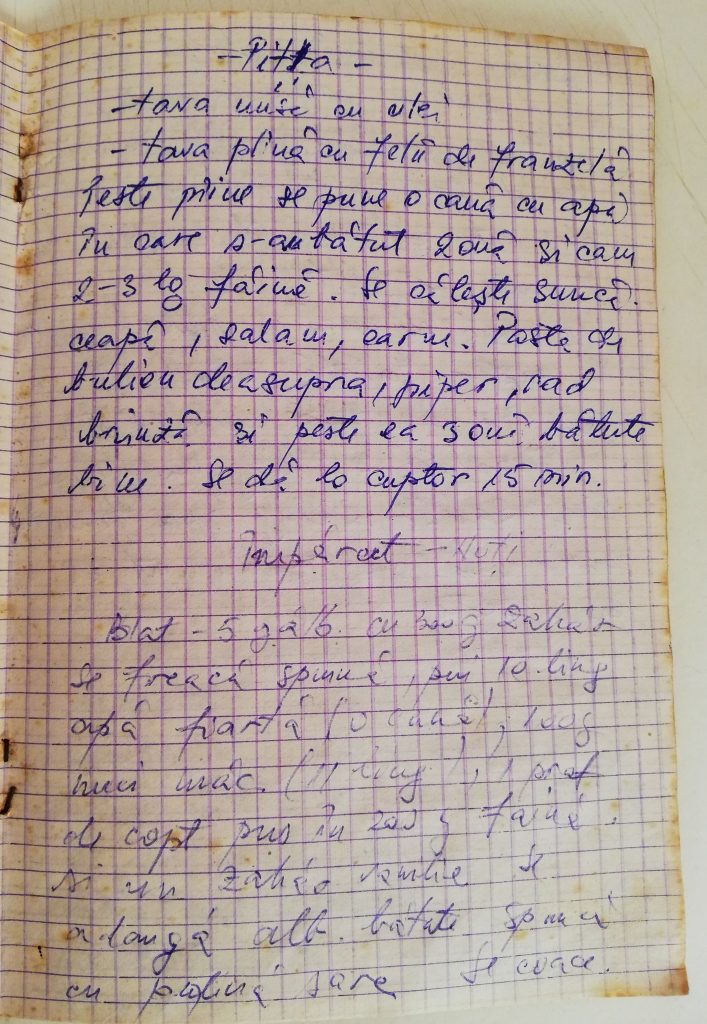 - Pitta -
- tava unsă cu ulei
- tava plină cu felii de franzelă
Peste pîine se pune o cană cu apă
în care s-au bătut 2 ouă și cam
2-3 lg făină. Se călește șuncă.
ceapă, salam, carne. Pastă de
bulion deasupra, piper, rad
brînză și peste ea 3 ouă bătute
bine. Se dă la cuptor 15 min.
Împărat -
Blat - 5 gălb. cu 300 g zahăr
se freacă spumă, pui 10 ling
apă fiartă (o cană), 100g
nuci măc. (11 ling), 1 praf
de copt pus în 200 g făină.
și un zahăr vanilie se
adaugă alb. bătute spumă
cu puțină sare se coace.